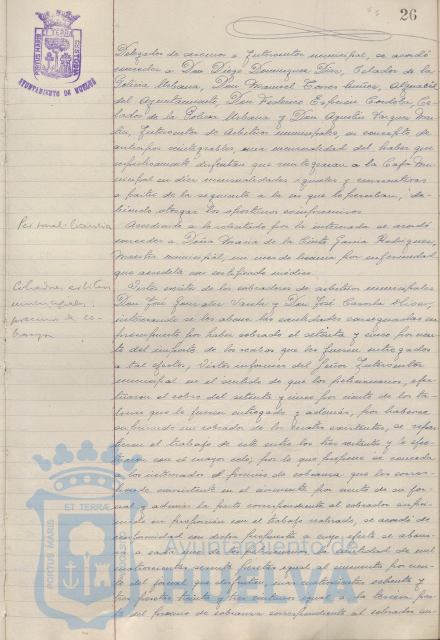 26
Delegados de servicio e Interventor municipal, se acordó
conceder a Don Diego Dominguez Diaz, Celador de la
Policia Urbana, Don Manuel Torres Muñoz, Alguacil
del Ayuntamiento, Don Federico Espinar Cordola, Ce-
lador de la Policia Urbana y Don Agustin Vazquez Mar-
tin, Interventor de Arbitrios municipales, en concepto de
anticipos reintegrables, una mensualidad del haber que
respectivamente disfrutan que reintegraran a la Caja Mu-
nicipal en diez mensualidades iguales y consecutivas
a partir de la siguiente a la en que lo perciban, de-
biendo otorgar los oportunos compromisos.
Personal. Licencia
Accediendo a lo solicitado por la interesada se acordó
conceder a Doña Maria de la Cinta Garcia Rodriguez,
Maestra municipal, un mes de licencia por enfermedad
que acredita con certificado médico.
Cobradores arbitrios
municipales,
premio de co-
branza
Visto escrito de los cobradores de arbitrios municipales
Don José Gonzalez Sanchez y Don José Olivar,
interesando se les abone las cantidades consignadas en
presupuesto por haber cobrado el setenta y cinco por cien-
to del importe de los recibos que les fueron entregados
a tal efecto; Visto informe del Señor Interventor
municipal en el sentido de que los peticionarios, efec-
tuaron el cobro del setenta y cinco por ciento de los ta-
lones que le fueron entregados y además, por haberse
enfermado un cobrador de los cuatro existentes, se
el trabajo de este entre los tres restantes y lo efec-
con el mayor celo, por lo que propone se conceda
a los interesados el premio de cobranza que les corres-
ponde consistente en el aumento por ciento de su jor-
nal y además la parte correspondiente al cobrador enfer-
mo en proporción con el trabajo realizado, se acordó de
conformidad con dicha propuesta a cuyo efecto se abona-
rá a cada uno de los mencionados la cantidad de mil
cuatrocientas sesenta pesetas igual al cincuenta por cien-
to del jornal que disfrutan, mas cuatrocientas ochenta y
tres pesetas treinta y tres centimos igual a la tercera par-
te del premio de cobranza correspondiente al cobrador en-
AYUNTAMIENTO DE HUELVA
PORTUS MARIS
ET TERRAE
Ayuntamiento de